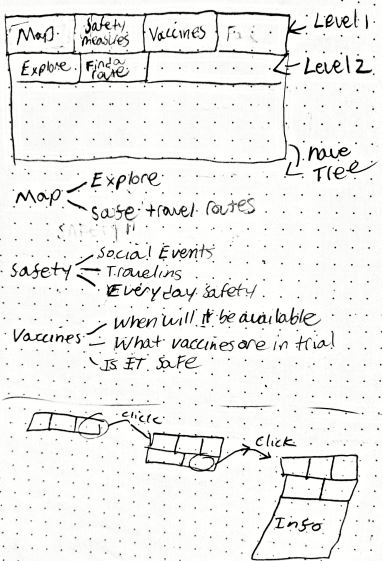 Map
Safety measures
Vaccines
Level 1
Explore
Find a route
Level 2
nave Tree
Map
Explore
Safe travel routes
Safety
Social Events
Traveling
Everyday safety
Vaccines
When will it be available
What vaccines are in trial
Is IT Safe
click
click
Info